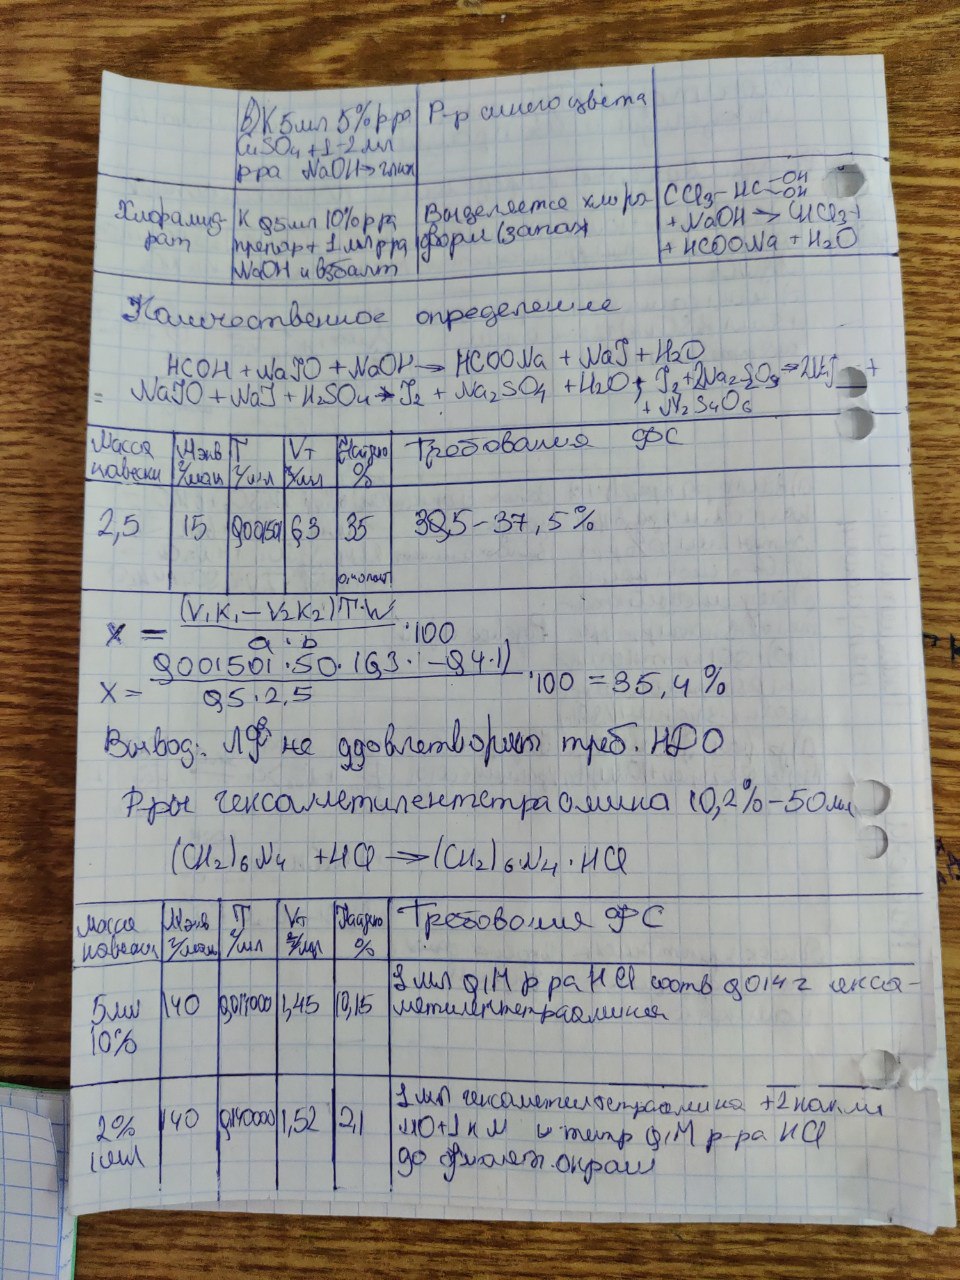 в) К 5 мл 5% р-ра
CuSO4 + 1-2 мл
р-ра NaOH →
Р-р синего цвета
Хлоралгид-
рат
К 0,5 мл 10% р-ра
препар + 1 мл р-ра
NaOH и взбалт
Выделяется хлоро-
форм (запах)
CCl3 – HC =OH OH
+ NaOH → CHCl3 +
+ HCOONa + H2O
Количественное определение
HCOH + NaJO + NaOH → HCOONa + NaJ + H2O
= NaJO + NaJ + H2SO4 → J2 + Na2SO4 + H2O; J2 + 2Na2S2O3 → 2NaJ +
+ Na2S4O6
Масса навески
Мэкв г/моль
Т г/мл
VТ
Найдено %
Требования ФС
2,5
15
0,001501
0,3
35
36,5 – 37,5%
X = (V1K1 – V2K2) T·W / a·b ·100
X = 0,001501·50·(0,3·1 – 0,4·1) / 0,5·2,5 ·100 = 35,4%
Вывод: ЛФ не удовлетворяет треб. НДО
Р-ры гексаметилентетрамина 10,2% – 50 мл
(CH2)6N4 + HCl → (CH2)6N4 · HCl
Масса навески
Мэкв г/моль
Т г/мл
VТ
Найдено %
Требования ФС
5 мл
10%
140
0,014000
1,45
10,15
1 мл 0,1М р-ра HCl соотв 0,014 г гекса-
метилентетрамина
2%
10 мл
140
0,014000
1,52
2,1
1 мл гексаметилтетрамина + 2 капли
МО + 1 к М и титр 0,1М р-ра HCl
до фиолет. окраш